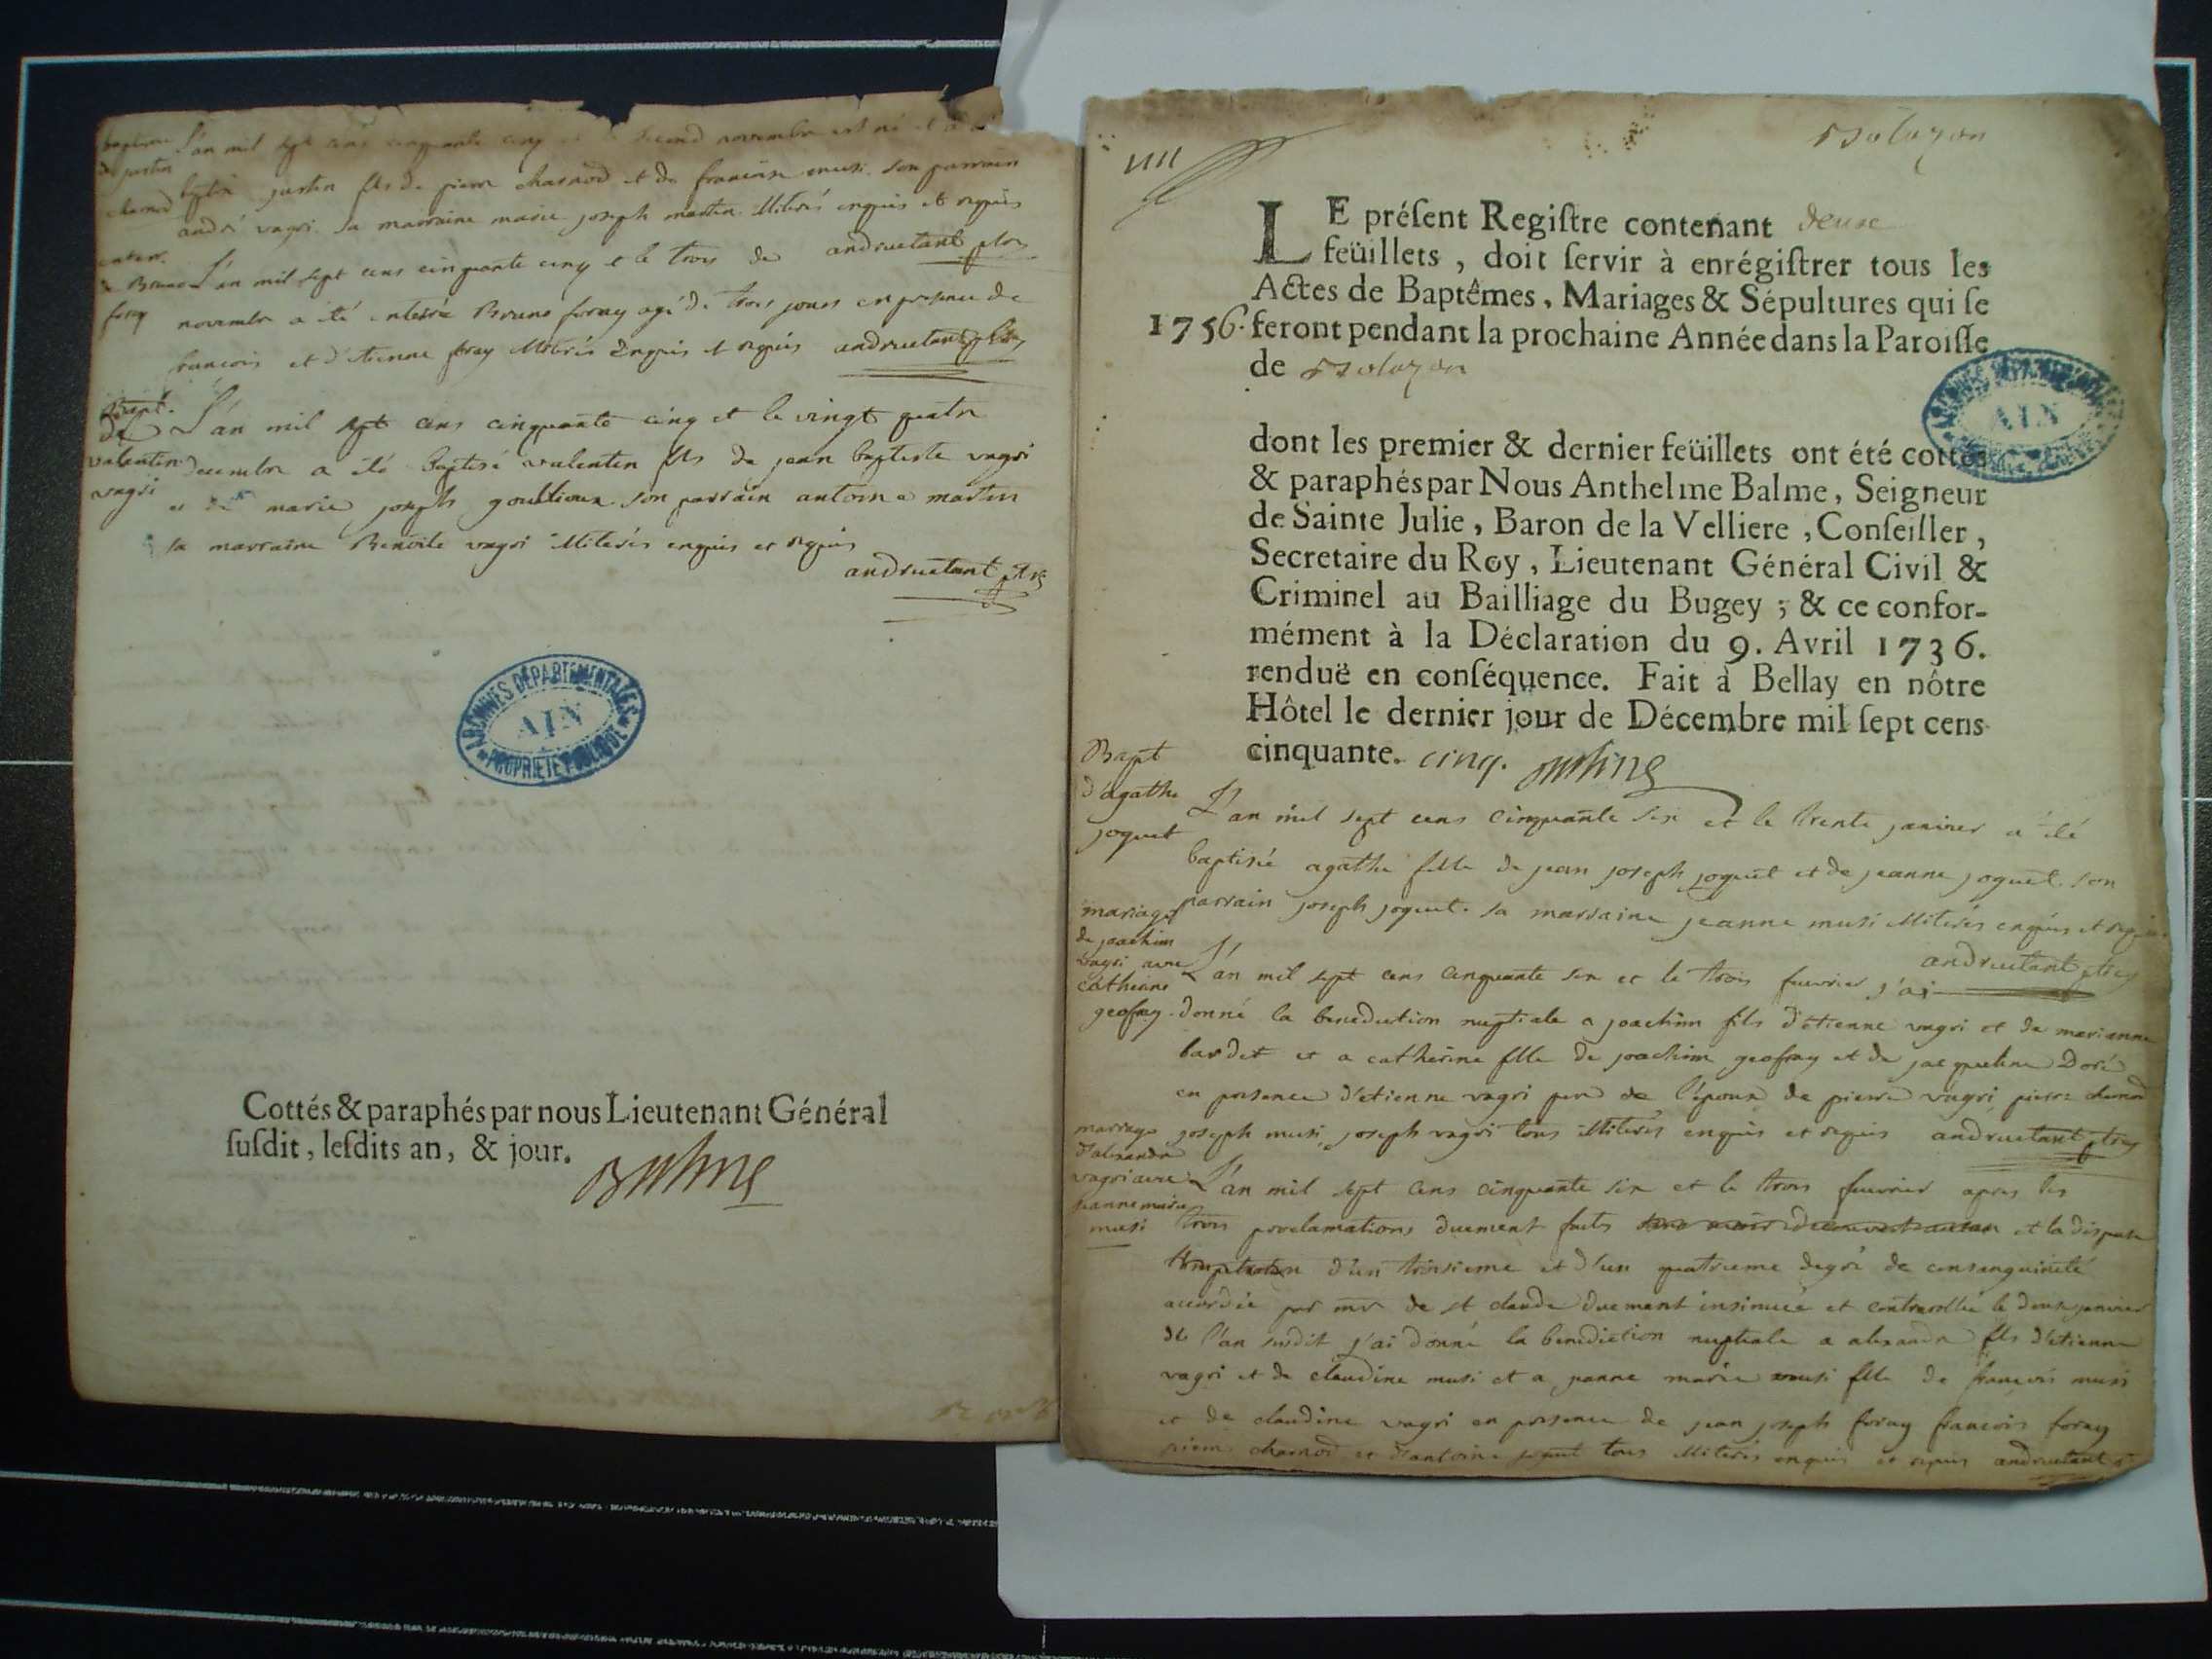 baptême
de justin
charnod
L'an mil sept cens cinquante cinq second novembre est né et a été
baptisé justin fils de pierre charnod et de francoise musi. son parrain
andré vagri sa marraine marie joseph martin illiterés enquis et requis
andruetant ptre
enterr.
de Bruno
foray
L'an mil sept cens cinquante cinq et le trois de
novembre a été enterré Bruno foray agé de trois jours en presence de
francois et d'etienne foray illiterés enquis et requis andruetant ptre
Bapt.
de
valentin
vagri
L'an mil sept cens cinquante cinq et le vingt quatre
decembre a été baptisé valentin fils de jean baptiste vagri
et de marie joseph son parrain antoine martin
sa marraine Benoite vagri illiterés enquis et requis
andruetant ptre
ARCHIVES DÉPARTEMENTALES
AIN
PROPRIÉTÉ PUBLIQUE
Cottés & paraphés par nous Lieutenant Général
susdit, lesdits an, & jour.
Balme
Bolozon
LE présent Registre contenant deux
feüillets, doit servir à enrégistrer tous les
Actes de Baptêmes, Mariages & Sépultures qui se
1756. feront pendant la prochaine Année dans la Paroisse
de Bolozon
AIN
dont les premier & dernier feüillets ont été cottés
& paraphés par Nous Anthelme Balme, Seigneur
de Sainte Julie, Baron de la Velliere, Conseiller,
Secretaire du Roy, Lieutenant Général Civil &
Criminel au Bailliage du Bugey ; & ce confor-
mément à la Déclaration du 9. Avril 1736.
renduë en conséquence. Fait à Bellay en nôtre
Hôtel le dernier jour de Décembre mil sept cens
cinquante. cinq. Balme
Bapt
d'agathe
joquet
L'an mil sept cens cinquante six et le trente janvier a été
baptisée agathe fille de jean joseph joquet et de jeanne joquet. son
parrain joseph joquet. sa marraine jeanne musi illiterés enquis et requis
andruetant ptre
mariage
de joachim
vagri avec
catherine
geofray
L'an mil sept cens cinquante six et le trois fuvrier j'ai
donné la benediction nuptiale a joachim fils d'etienne vagri et de marianne
bardet et a catherine fille de joachim geofray et de jacqueline Doré
en presence d'etienne vagri pere de l'epoux de pierre vagri, pierre charnod
joseph musi, joseph vagri tous illiterés enquis et requis andruetant ptre
mariage
d'alexandre
vagri avec
jeanne marie
musi
L'an mil sept cens cinquante six et le trois fuvrier apres les
trois proclamations duement faites et la dispense
d'un troisieme et d'un quatrieme degré de consanguinité
accordée par mr de st claude duement insinuée et controollée le janvier
de l'an susdit j'ai donné la benediction nuptiale a alexandre fils d'etienne
vagri et de claudine musi et a jeanne marie musi fille de francois musi
et de claudine vagri en presence de jean joseph foray francois foray
pierre charnod et d'antoine joquet tous illiterés enquis et requis andruetant